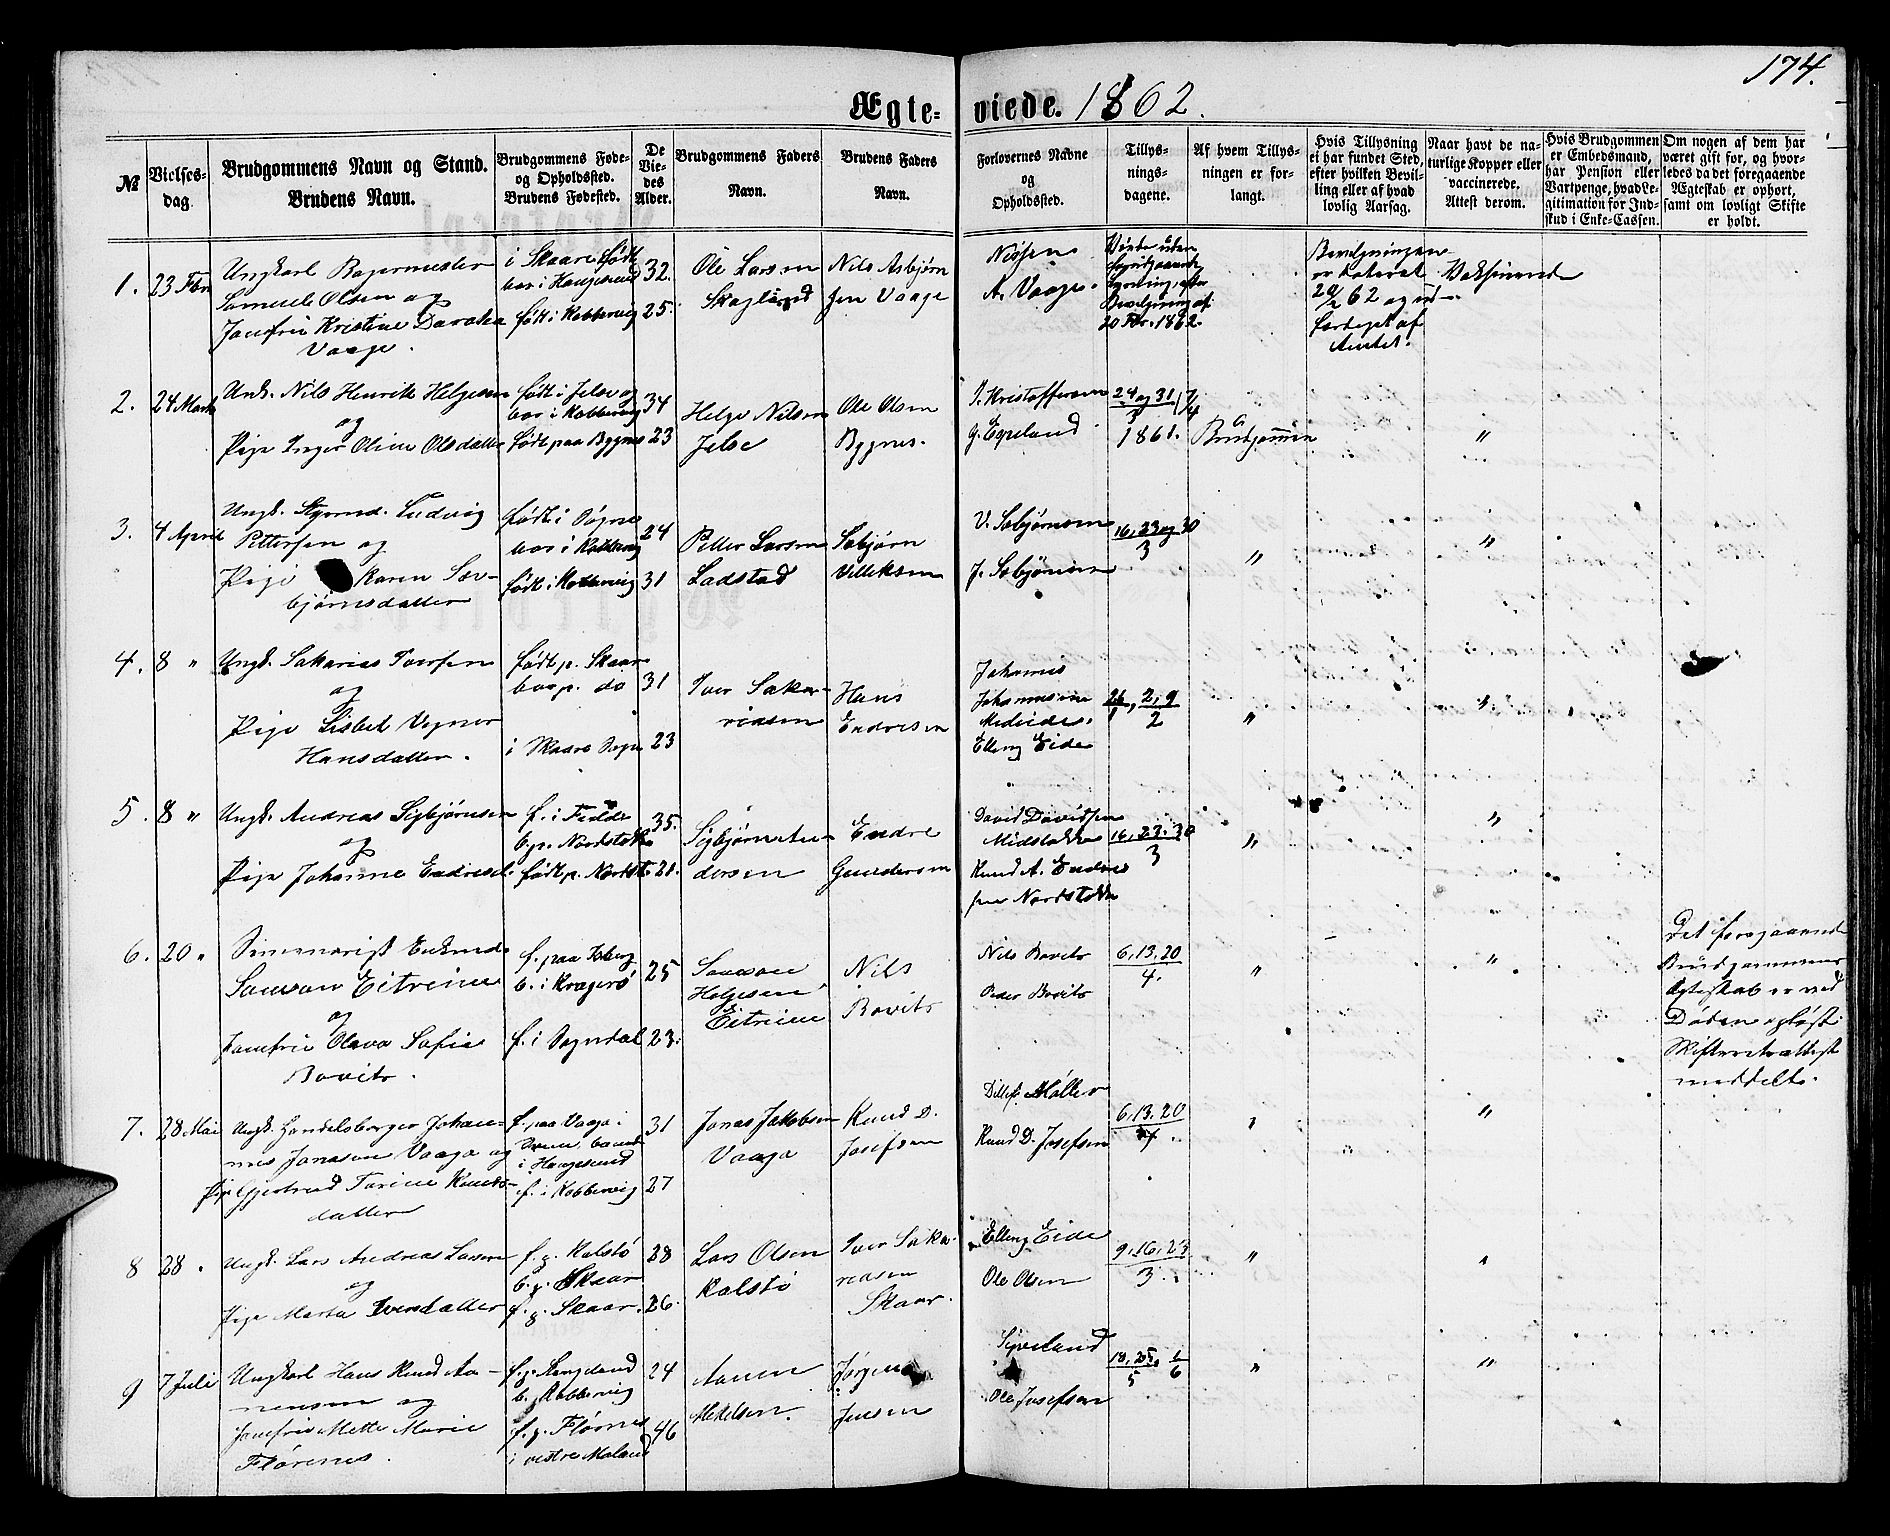 174.
Ægteviede. 1862.
№
Vielsesdag.
Brudgommens Navn og Stand.
Brudens Navn.
Brudgommens Føde- og Opholdssted.
Brudens Fødested.
De Viedes Alder.
Brudgommens Faders Navn.
Brudens Faders Navn.
Forlovernes Navne og Opholdssted.
Tillysningsdagene.
Af hvem Tillysningen er forlangt.
Hvis Tillysning ei har fundet Sted, efter hvilken Bevilling eller af hvad lovlig Aarsag.
Naar havt de naturlige Kopper eller vaccinerede. Attest derom.
Hvis Brudgommen er Embedsmand, har Pension eller Vartpenge, hvad Legitimation for Indskud i Enke-Cassen.
Om nogen af dem har været gift før, og hvorledes da det foregaaende Ægteskab er ophørt, samt om lovligt Skifte er holdt.
1. 23 Febr
Ungkarl Bagermester
Olsen og
Jomfru Kristine
Vaage.
i Skaare født
bor i Haugesund 32.
født i Kobbervig 25.
Ole Larsen
Skagland
Nils Asbjørn
sen Vaage
Nissen
A. Vaage.
20 Febr. 1862.
Bevilgningen
er dateret
20/2 62 og ud-
færdiget af
Amtet.
Vaksineret
2. 24 Marts
Unk. Nils Henrik Helgesen
og
Pige Inger Oline Olsdatter
født i Jelse og
bor i Kobbervig 34
født paa Bygnes 23
Helge Nilsen
Jelse
Ole Olsen
Bygnes.
J. Kristoffersen
G. Egeland
24 og 31/3 7/4
1861.
Brudgommen
"
3. 4 April
Ungk. Styrmd. Ludvig
Pettersen og
Pige Karen Sæ-
bjørnsdatter
født i Sogne
bor i Kobbervig 24
født i Kobbervig 31
Petter Larsen
Ladstad
Sæbjørn
Villeksen
V. Sæbjørnsen
J. Sæbjørnsen
16, 23 og 30/3
"
"
4. 8 "
Ungk. Sakarias Iversen
og
Pige Lisbet
Hansdatter.
født p. Skaar
bor p. do 31
i Skaare Sogn 23
Iver Saka-
riasen
Hans
Endresen
Johannes
Johannesen
Elling Eide
26/1, 2, 9/2
"
"
5. 8 "
Ungk. Andreas Sigbjørnsen
og
Pige Johanne Endresd.
f. i
b. p. Nordstokke 35.
født p. Nordst. 21.
Sigbjørn An-
dersen
Endre
Gundersen
David Davidsen
Midstokke
Knud A. Endres
sen Nordstokke
16, 23, 30/3
"
"
6. 20 "
Enkemd.
Samson Eitreim
og
Jomfru Olava Sofie
Bovits.
f. paa
b. i Kragerø 25
f. i Sogndal 23.
Samson
Helgesen
Eitreim
Nils
Bovits
Nils Bovits
Peder Bovits
6, 13, 20/4.
"
"
Det foregaaende
Brudgommens
Ægteskab er ved
Døden opløst.
Skifteretsattest
meddelt.
7. 28 Mai
Ungk. Handelsborger Johan-
nes Jonasen Vaage og
Pige Gjertrud Torine Knuds-
datter
f. paa Vaage i
i Haugesund 31
f. i Kobbervig 27
Jonas Jakobsen
Vaage
Knud D.
Josefsen
Ditlef Møller
Knud D. Josefsen
6, 13, 20/4
"
"
8 28 "
Ungk. Lars Andreas Larsen
og
Pige Marta Iversdatter
f. p. Kalstø
b. p. Skaar 28
f. p. Skaar. 26.
Lars Olsen
Kalstø
Iver Saka-
riasen
Skaar.
Elling Eide
Ole Olsen
9, 16, 23/3.
"
"
9 7 Juli
Ungkarl Hans Knud Aa-
nensen og
Jomfru Mette Marie
Flørenes.
f. p.
b. p. Kobbervig 24
f. p. Flørnes
i vestre 46
Aanen
Mekelsen.
Jørgen
Jensen
Ole Josefsen
18, 25/5, 1/6
"
"